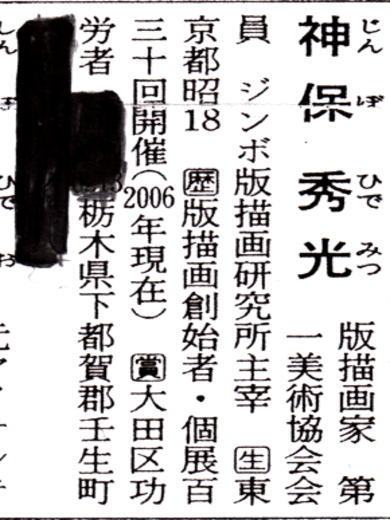 神保秀光
じんぼ ひでみつ
版描画家 第
一美術協会会
員 ジンボ版描画研究所主宰 生東
京都昭18 歴版描画創始者・個展百
三十回開催(2006年現在) 賞大田区功
労者 栃木県下都賀郡壬生町